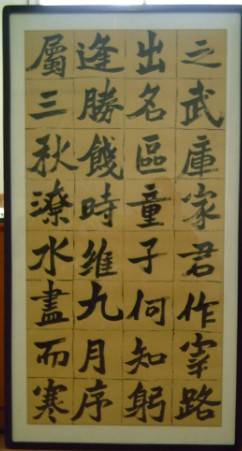 之武庫家君作宰路
出名區童子何知躬
逢勝餞時維九月序
屬三秋潦水盡而寒